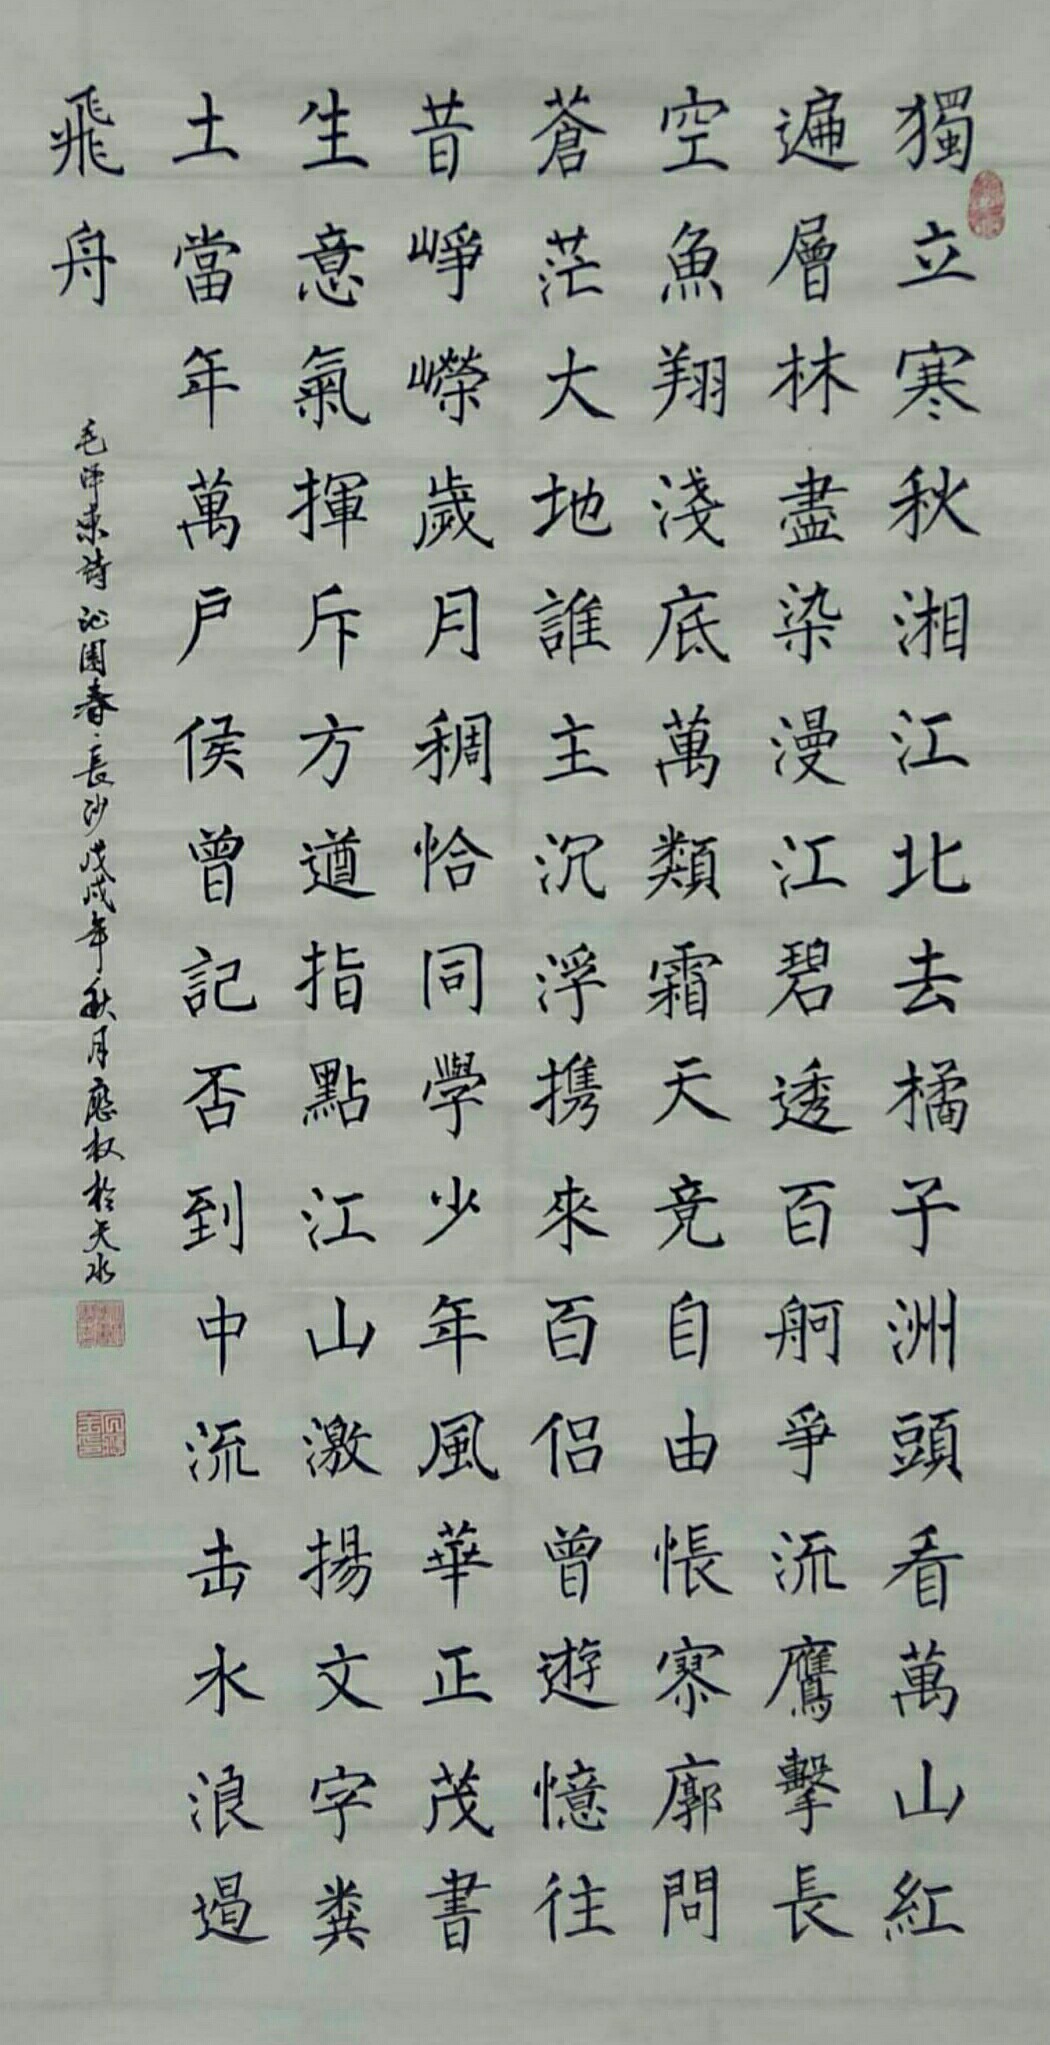 獨立寒秋湘江北去橘子洲頭看萬山紅
遍層林盡染漫江碧透百舸爭流鷹擊長
空魚翔淺底萬類霜天竞自由悵寥廓問
蒼茫大地誰主沉浮携來百侣曾遊憶往
昔崢嶸歲月稠恰同學少年風華正茂書
生意氣揮斥方遒指點江山激揚文字糞
土當年萬户侯曾記否到中流击水浪遏
飛舟
毛泽東詩沁園春·長沙戊戌年秋月應权於天水